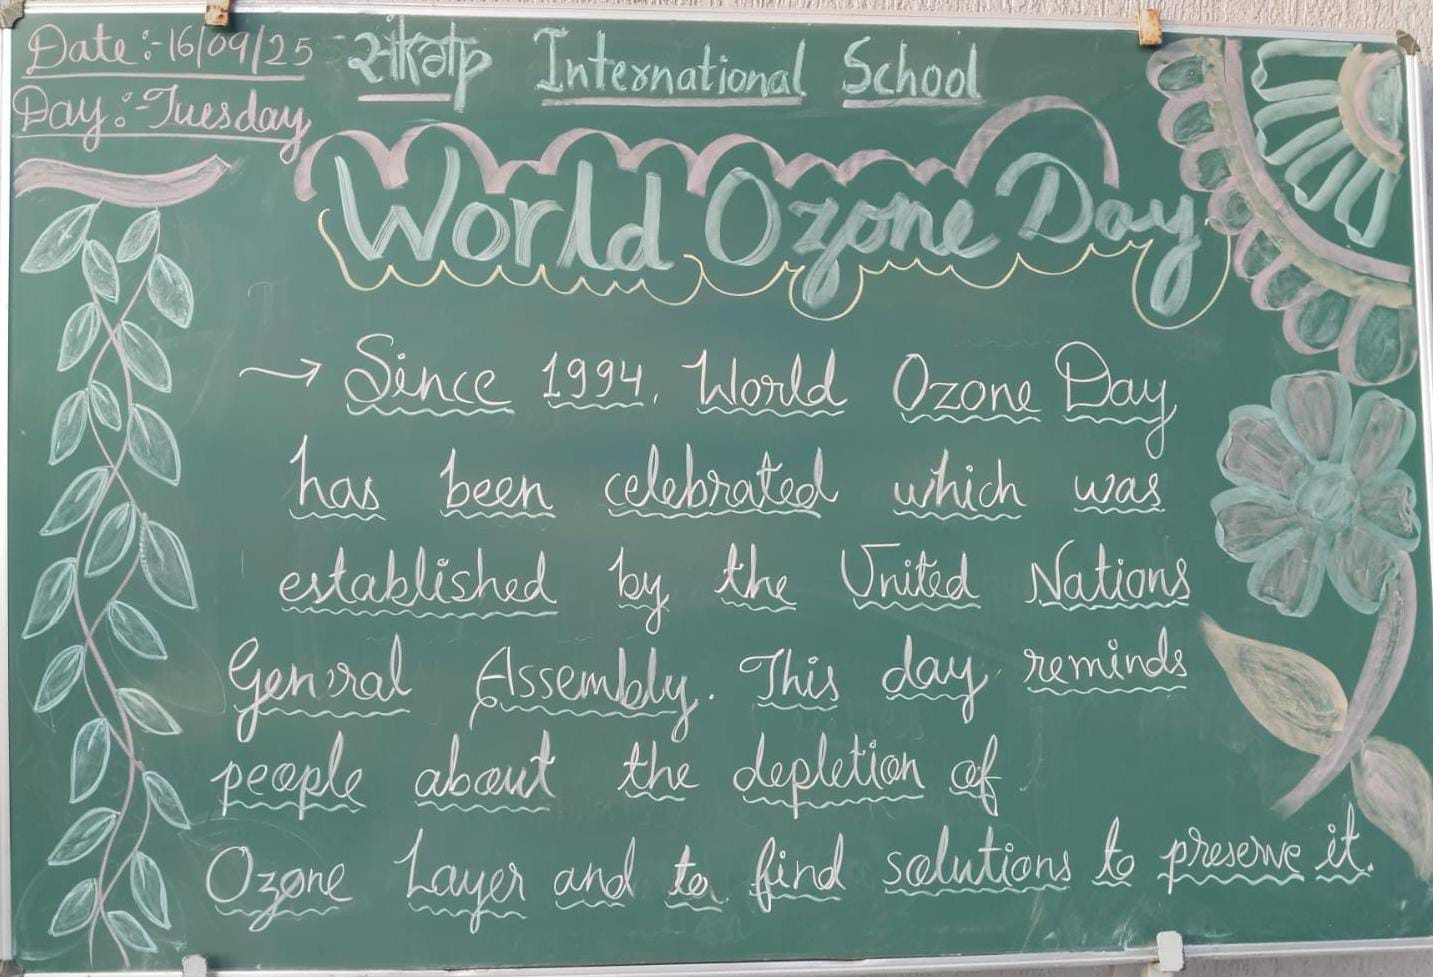 Date :- 16/09/25
Day :- Tuesday
संकल्प International School
World Ozone Day
→ Since 1994, World Ozone Day
has been celebrated which was
established by the United Nations
General Assembly. This day reminds
people about the depletion of
Ozone Layer and to find solutions to preserve it.